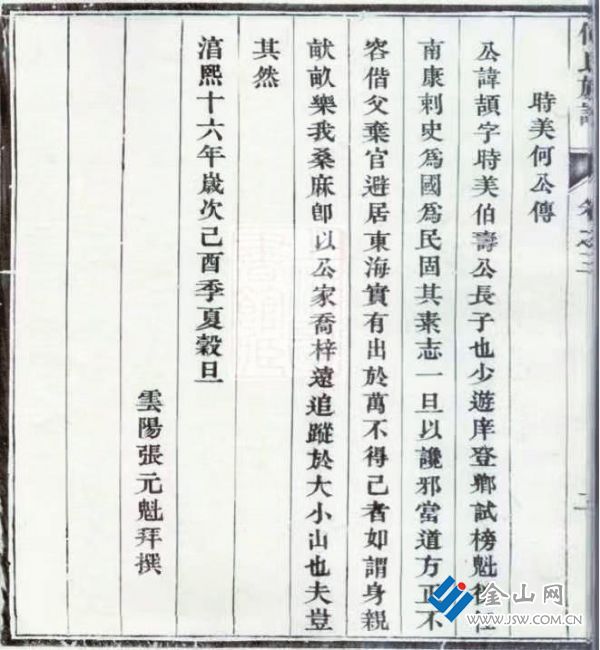 何氏族譜
卷之三
二
時美何公傳
公諱頡字時美伯壽公長子也少遊庠登鄉試榜魁後任
南康刺史爲國爲民固其素志一旦以讒邪當道方正不
容偕父棄官避居東海實有出於萬不得已者如謂身親
畎畝樂我桑麻卽以公家喬梓遠追蹤於大小山也夫豈
其然
湻熙十六年歲次己酉季夏穀旦
雲陽張元魁拜撰
金山网
www.jsw.com.cn